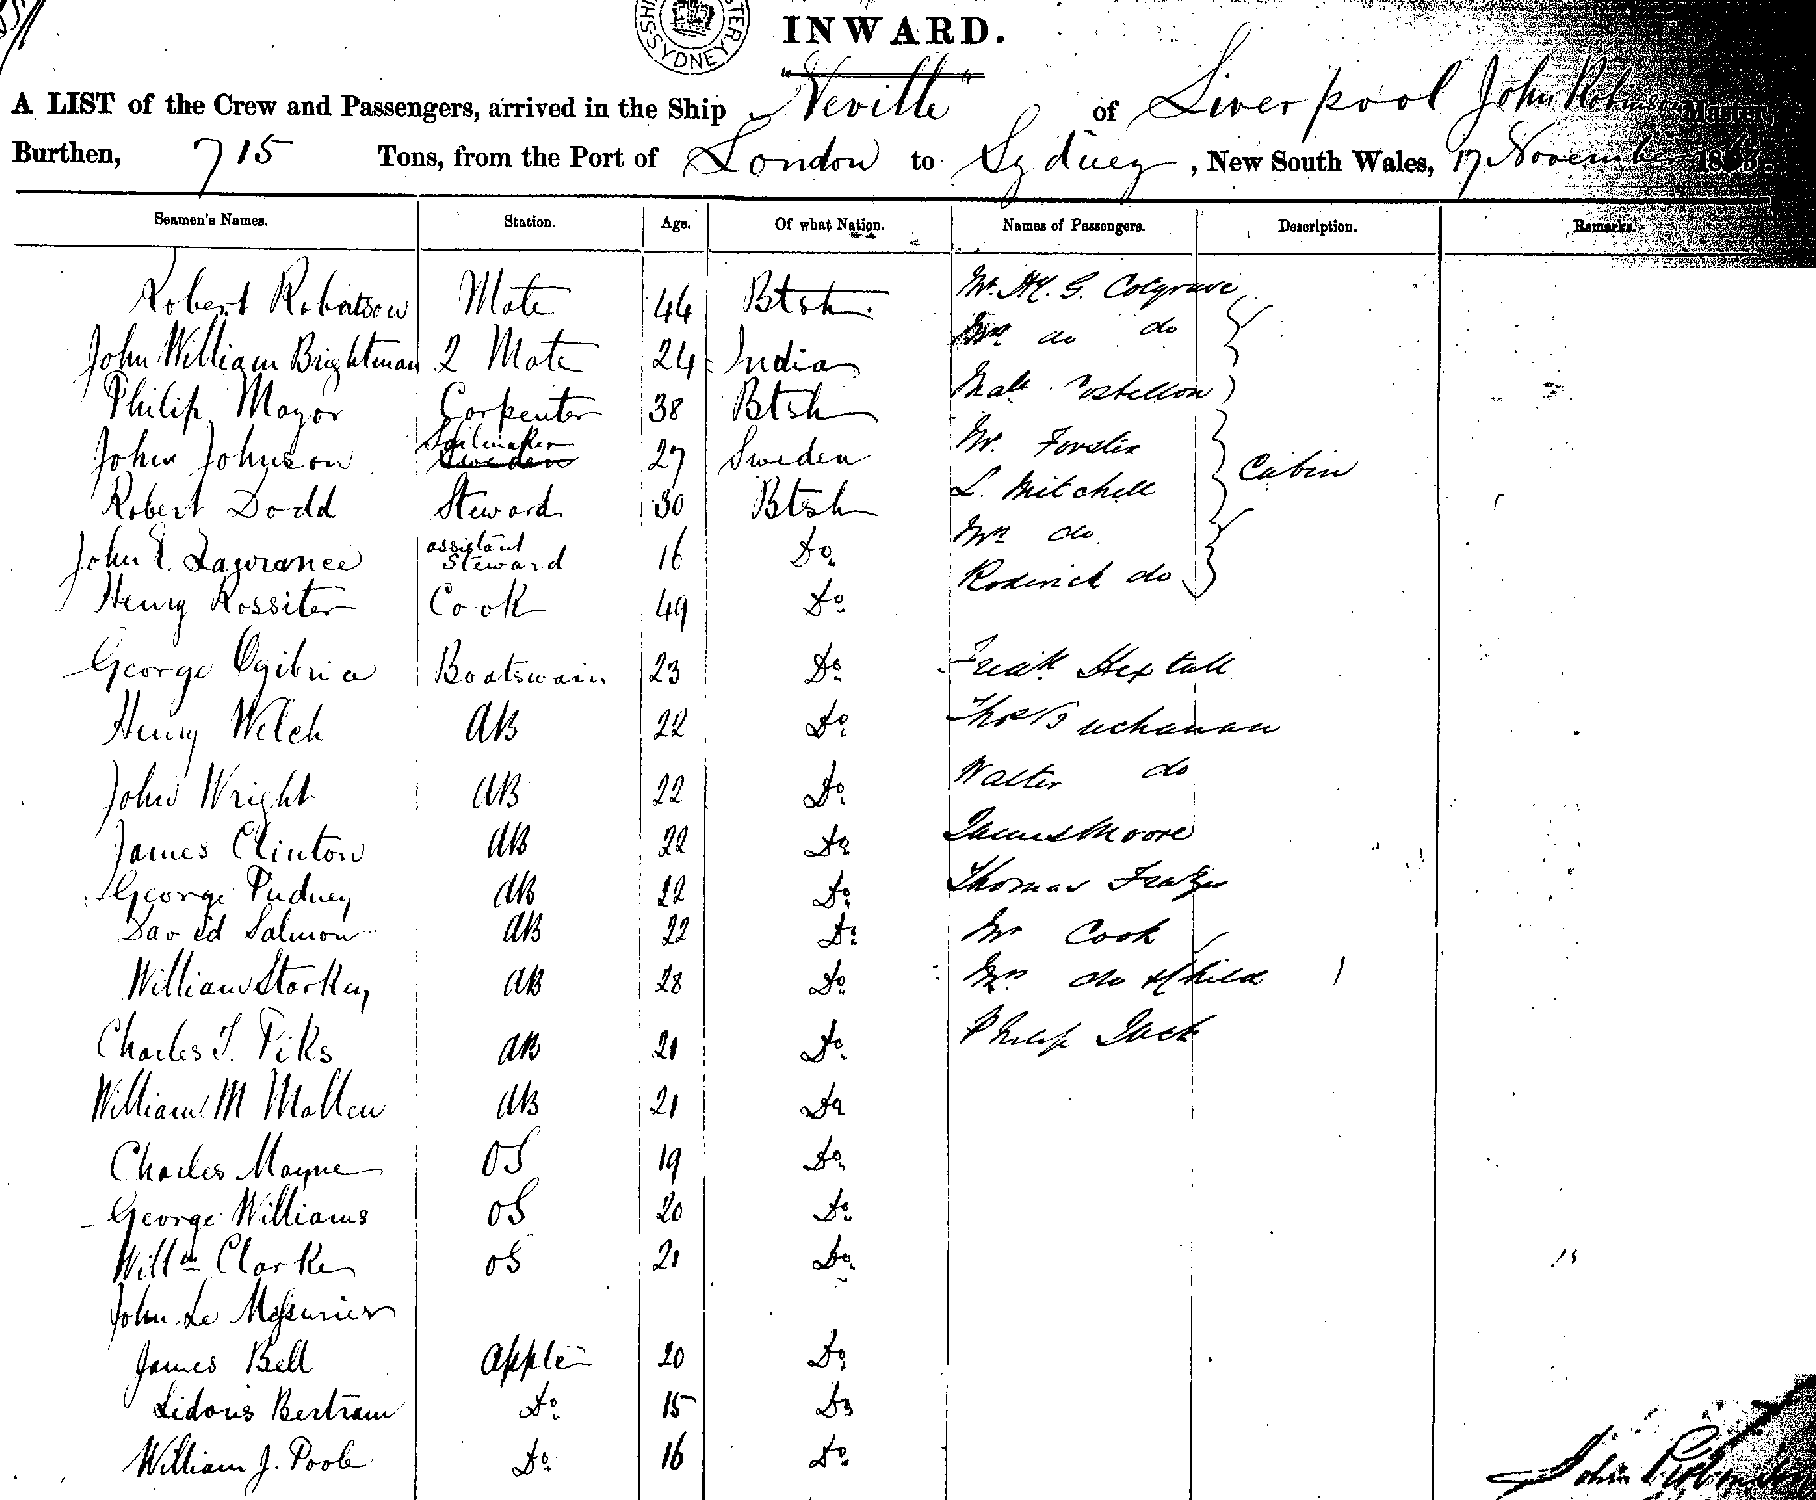 INWARD.
A LIST of the Crew and Passengers, arrived in the Ship "Neville" of Liverpool John Robinson Master,
Burthen, 715 Tons, from the Port of London to Sydney, New South Wales, 17 November
Seamen's Names. Station. Age. Of what Nation. Names of Passengers. Description. Remarks.
Robert Robertson Mate 44 Btsh Mr. G. Colgrave
John William Brightman 2 Mate 24 India Mrs do do
Philip Mayor Carpenter 38 Btsh
John Johnson Sailmaker Sweden 27 Sweden Mr. Forster
Cabin
Robert Dodd Steward 30 Btsh L. Mitchell
John Lawrance assistant Steward 16 Do Mrs do
Henry Rossiter Cook 49 Do Roderick do
George Boatswain 23 Do Fredk Hextall
Henry Welch AB 22 Do Thos Buchanan
John Wright AB 22 Do Walter do
James Clinton AB 22 Do James Moore
George Pudney AB 22 Do Thomas
David Salmon AB 22 Do Mr Cook
William Storkey AB 28 Do Mrs do & Child 1
Charles T. Piks AB 21 Do Philip Jack
William M Mallen AB 21 Do
Charles Mayne OS 19 Do
George Williams OS 20 Do
Willm Clarke OS 21 Do
John Le Messurier
James Bell Appte 20 Do
Bertram Do 15 Do
William J. Poole Do 16 Do
John Robinson